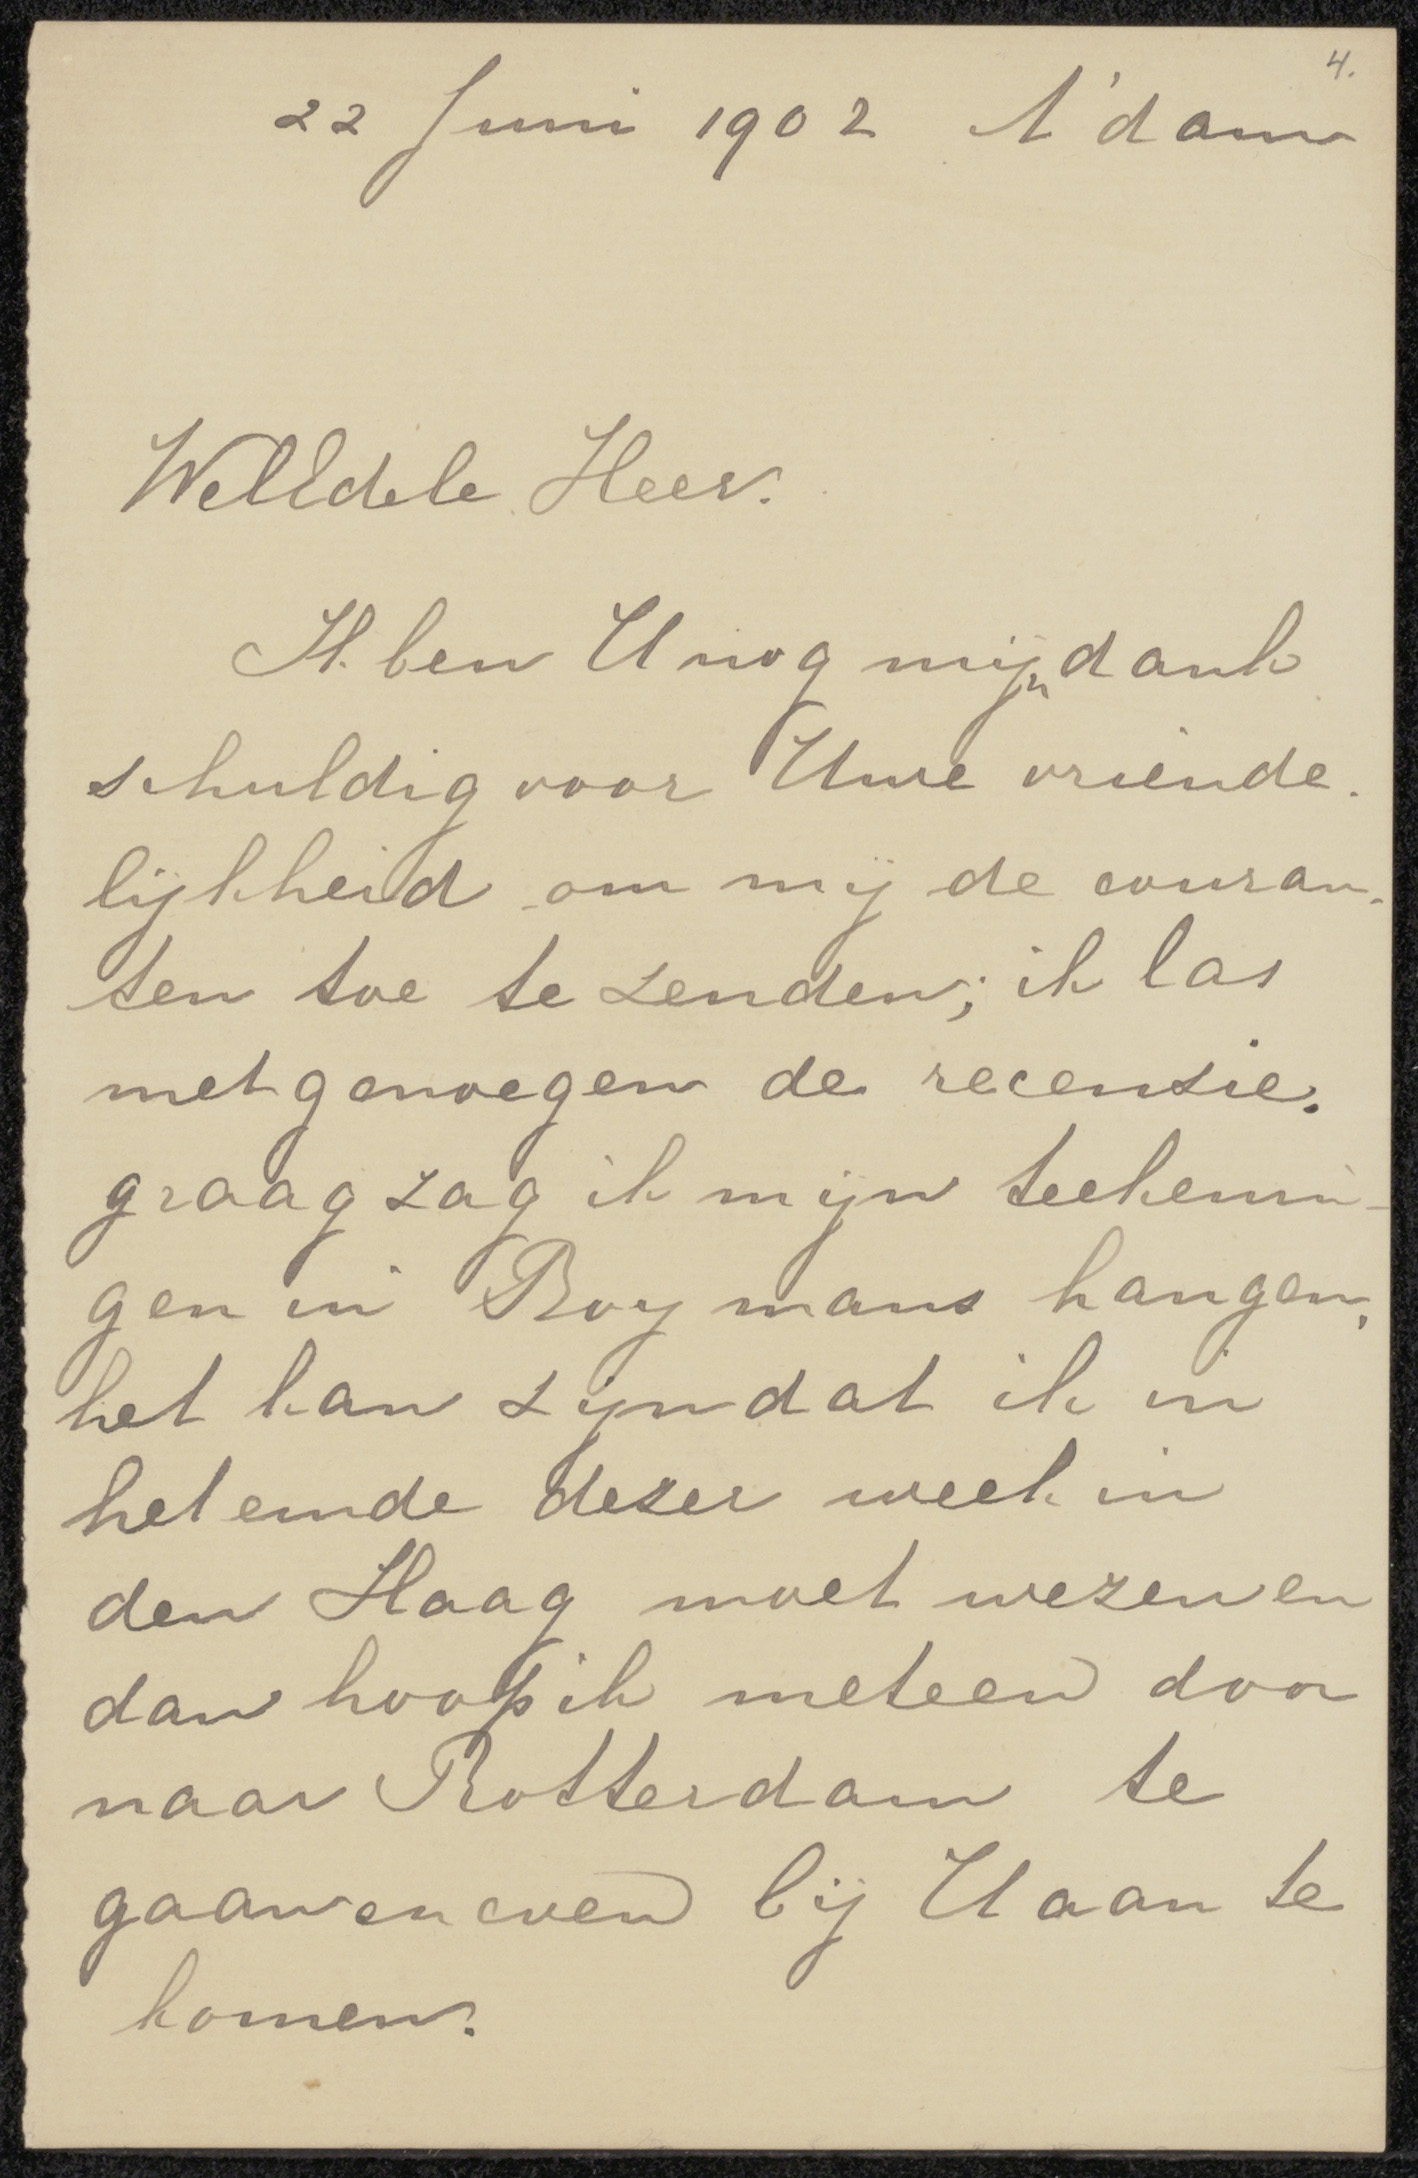 4.
22 Juni 1902 A'dam
WelEdele Heer.
Ik ben U nog mijn dank
schuldig voor Uwe vriende-
lijkheid om mij de couran-
ten toe te zenden; ik las
met genoegen de recensie.
graag zag ik mijn teekenin-
gen in Boymans hangen,
het kan zijn dat ik in
het einde dezer week in
den Haag moet wezen en
dan hoop ik meteen door
naar Rotterdam te
gaan en even bij U aan te
komen.